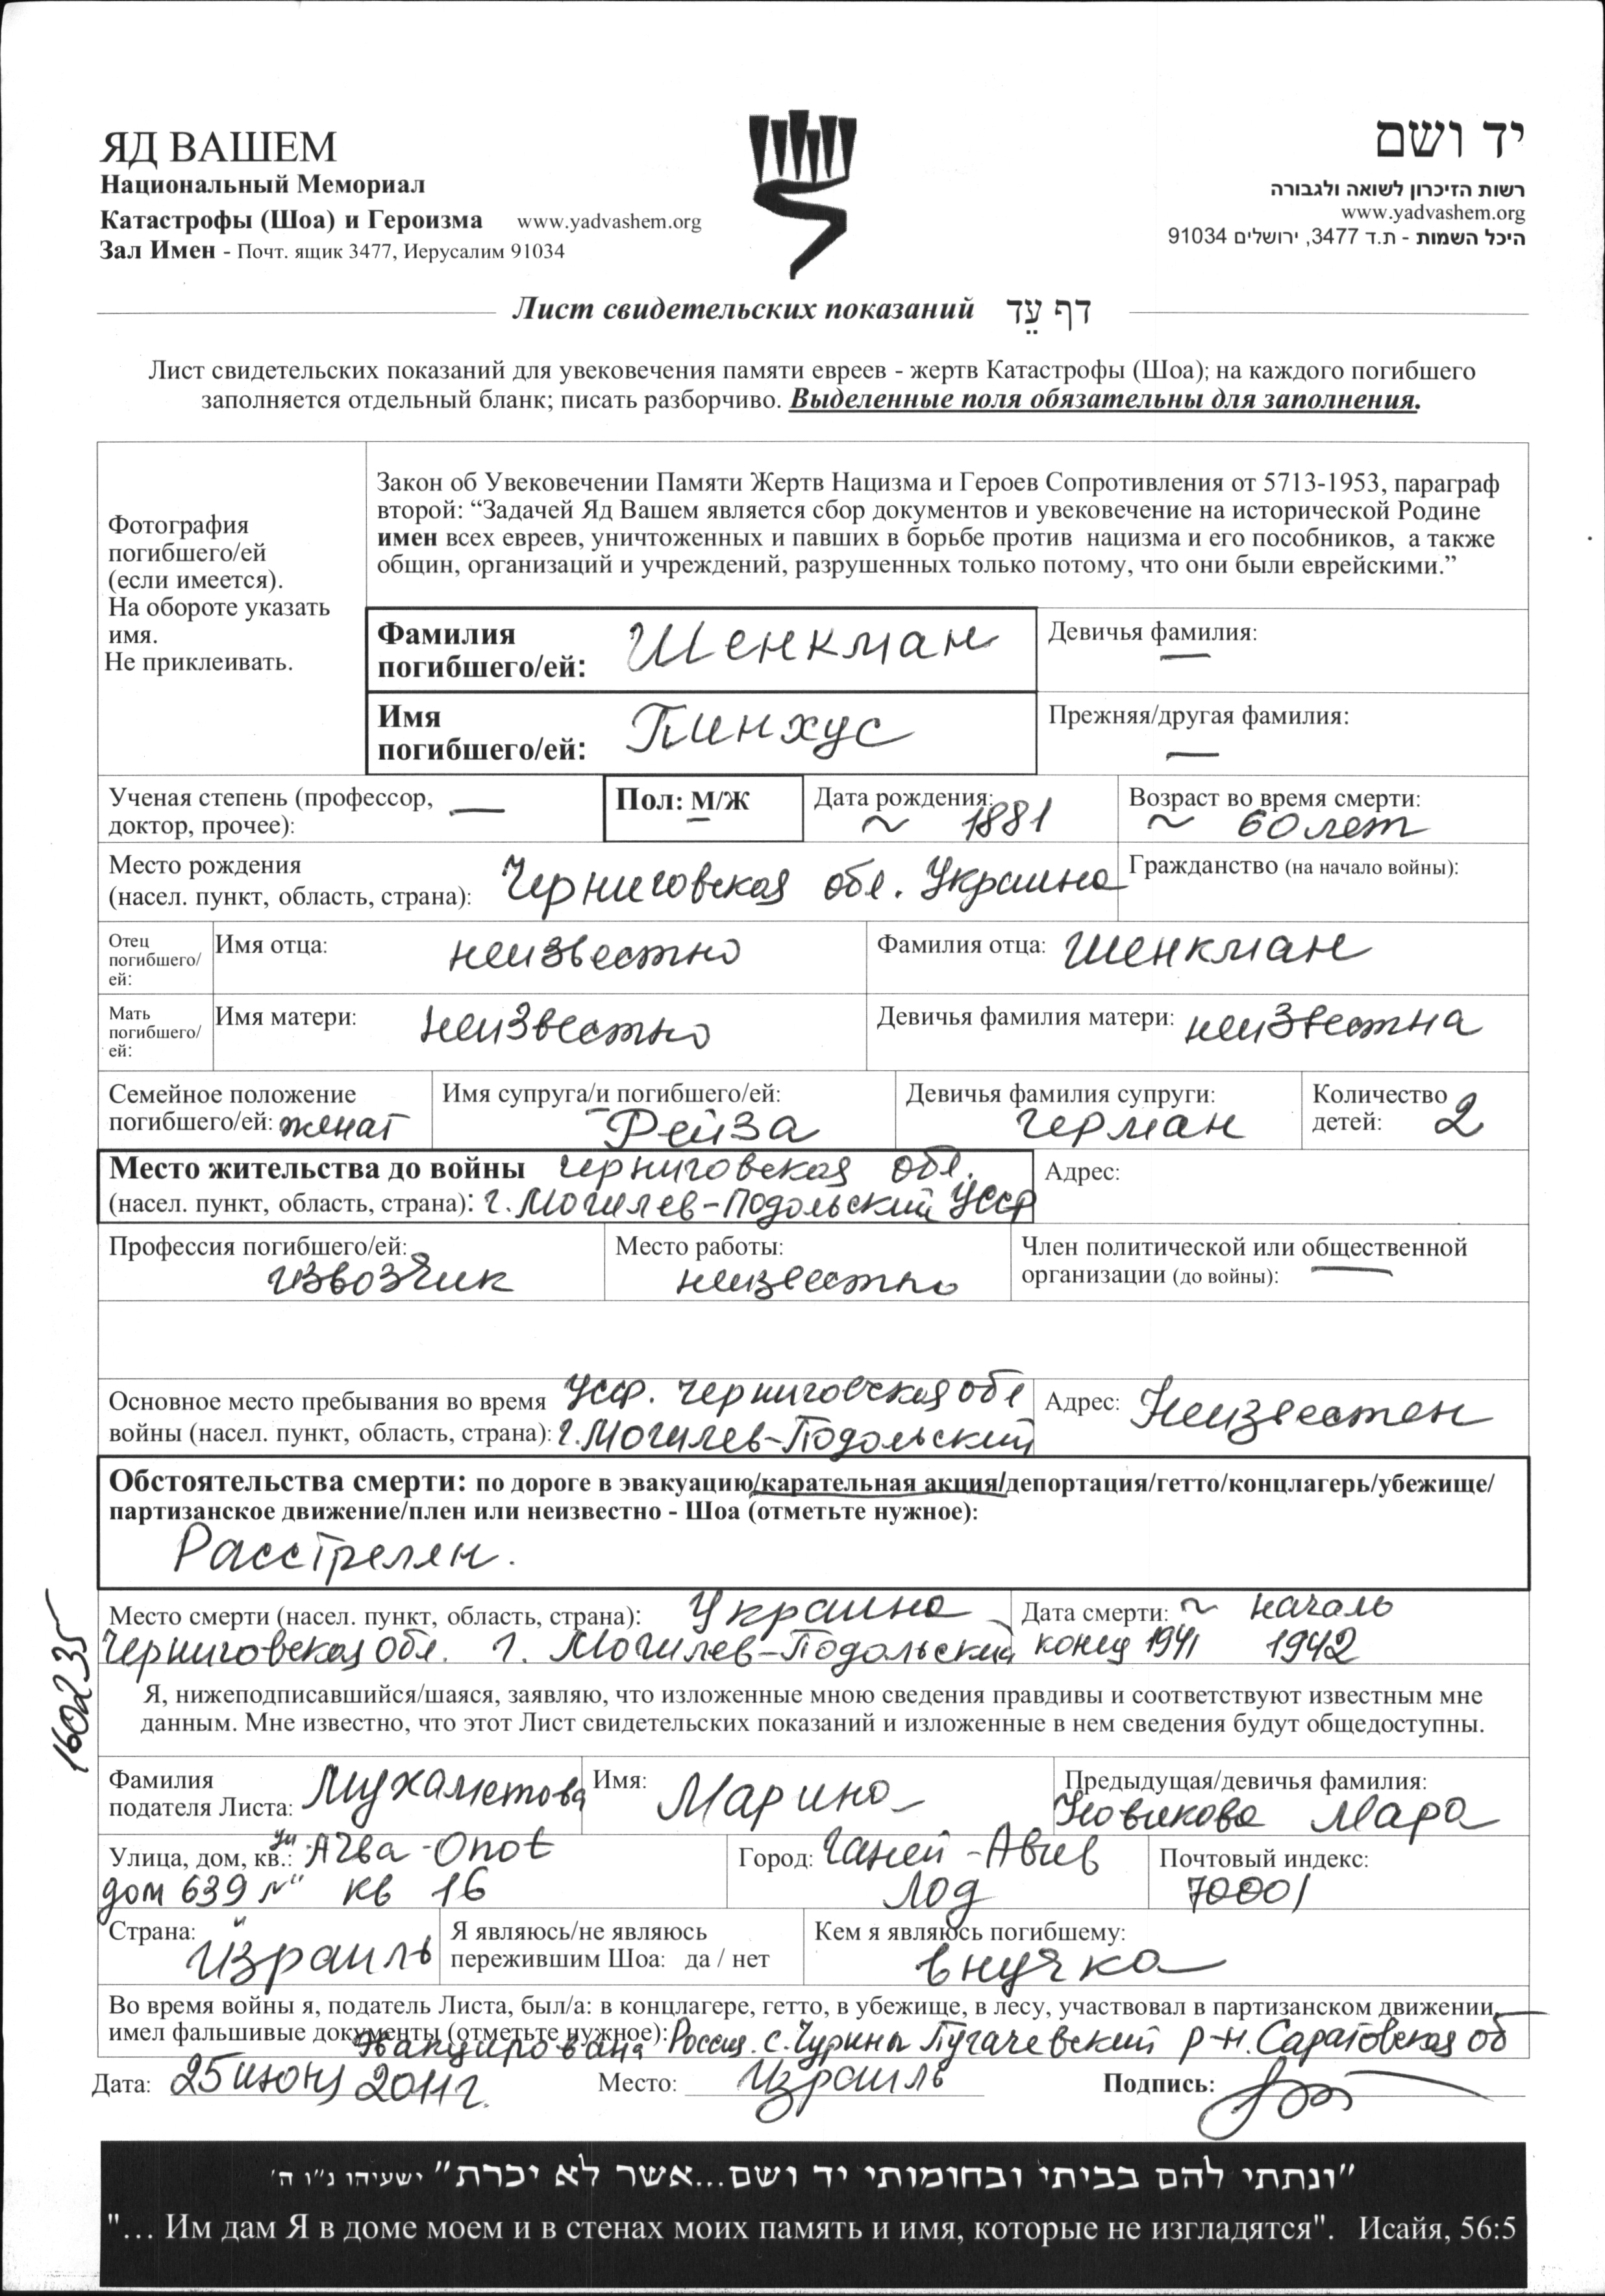 ЯД ВАШЕМ
Национальный Мемориал
Катастрофы (Шоа) и Героизма www.yadvashem.org
Зал Имен - Почт. ящик 3477, Иерусалим 91034
יד ושם
רשות הזיכרון לשואה ולגבורה
www.yadvashem.org
היכל השמות - ת.ד 3477, ירושלים 91034
Лист свидетельских показаний דף עֵד
Лист свидетельских показаний для увековечения памяти евреев - жертв Катастрофы (Шоа); на каждого погибшего
заполняется отдельный бланк; писать разборчиво. Выделенные поля обязательны для заполнения.
Фотография
погибшего/ей
(если имеется).
На обороте указать
имя.
Не приклеивать.
Закон об Увековечении Памяти Жертв Нацизма и Героев Сопротивления от 5713-1953, параграф
второй: “Задачей Яд Вашем является сбор документов и увековечение на исторической Родине
имен всех евреев, уничтоженных и павших в борьбе против нацизма и его пособников, а также
общин, организаций и учреждений, разрушенных только потому, что они были еврейскими.”
Фамилия
погибшего/ей: Шенкман
Девичья фамилия:
—
Имя
погибшего/ей: Пинхус
Прежняя/другая фамилия:
—
Ученая степень (профессор, —
доктор, прочее):
Пол: М/Ж
Дата рождения:
~ 1881
Возраст во время смерти:
~ 60 лет
Место рождения
(насел. пункт, область, страна): Черниговская обл. Украина
Гражданство (на начало войны):
Отец
погибшего/
ей:
Имя отца: неизвестно
Фамилия отца: Шенкман
Мать
погибшего/
ей:
Имя матери: неизвестно
Девичья фамилия матери: неизвестна
Семейное положение
погибшего/ей: женат
Имя супруга/и погибшего/ей:
Рейза
Девичья фамилия супруги:
Герман
Количество
детей: 2
Место жительства до войны Черниговская обл.
(насел. пункт, область, страна): г. Могилев-Подольский УССР
Адрес:
Профессия погибшего/ей:
извозчик
Место работы:
неизвестно
Член политической или общественной
организации (до войны): —
Основное место пребывания во время УССР. Черниговская обл
войны (насел. пункт, область, страна): г. Могилев-Подольский
Адрес: Неизвестен
Обстоятельства смерти: по дороге в эвакуацию/карательная акция/депортация/гетто/концлагерь/убежище/
партизанское движение/плен или неизвестно - Шоа (отметьте нужное):
Расстрелян.
Место смерти (насел. пункт, область, страна): Украина
Черниговская обл. г. Могилев-Подольский
Дата смерти: ~ начало
конец 1941 1942
160235
Я, нижеподписавшийся/шаяся, заявляю, что изложенные мною сведения правдивы и соответствуют известным мне
данным. Мне известно, что этот Лист свидетельских показаний и изложенные в нем сведения будут общедоступны.
Фамилия
подателя Листа: Мухаметова
Имя: Марина
Предыдущая/девичья фамилия:
Новикова Мара
Улица, дом, кв.: ул Arba-Onot
дом 639 кв 16
Город: Ганей-Авив
Лод
Почтовый индекс:
70001
Страна:
Израиль
Я являюсь/не являюсь
пережившим Шоа: да / нет
Кем я являюсь погибшему:
внучка
Во время войны я, податель Листа, был/а: в концлагере, гетто, в убежище, в лесу, участвовал в партизанском движении,
имел фальшивые документы (отметьте нужное): Россия. с. Пугачевский р-н. Саратовская об
Дата: 25 июня 2011 г.
Место: Израиль
Подпись:
"ונתתי להם בביתי ובחומותי יד ושם...אשר לא יכרת" ישעיהו נ"ו ה'
"… Им дам Я в доме моем и в стенах моих память и имя, которые не изгладятся". Исайя, 56:5